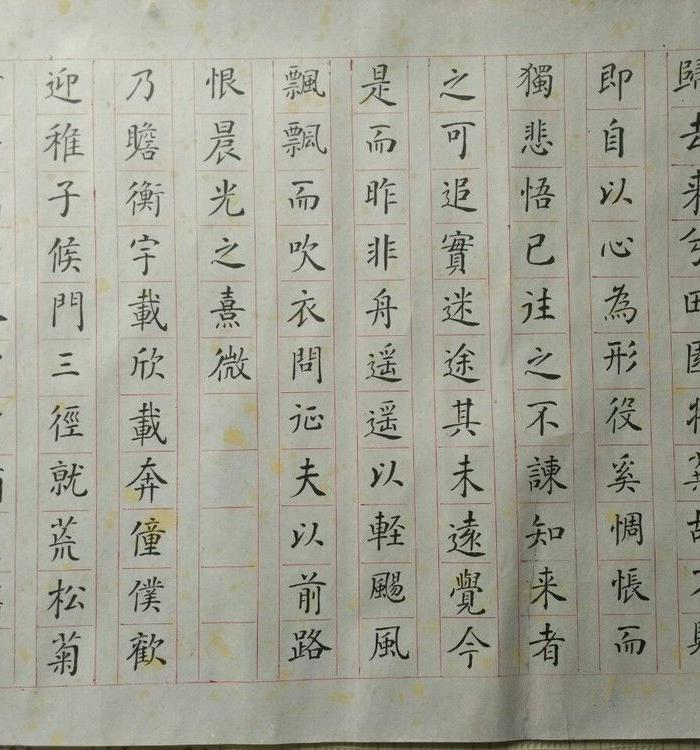 歸去来兮田園将蕪胡不歸
即自以心為形役奚惆悵而
獨悲悟已往之不諫知来者
之可追實迷途其未遠覺今
是而昨非舟遥遥以軽颺風
飄飄而吹衣問征夫以前路
恨晨光之熹微
乃瞻衡宇載欣載奔僮僕歡
迎稚子候門三徑就荒松菊